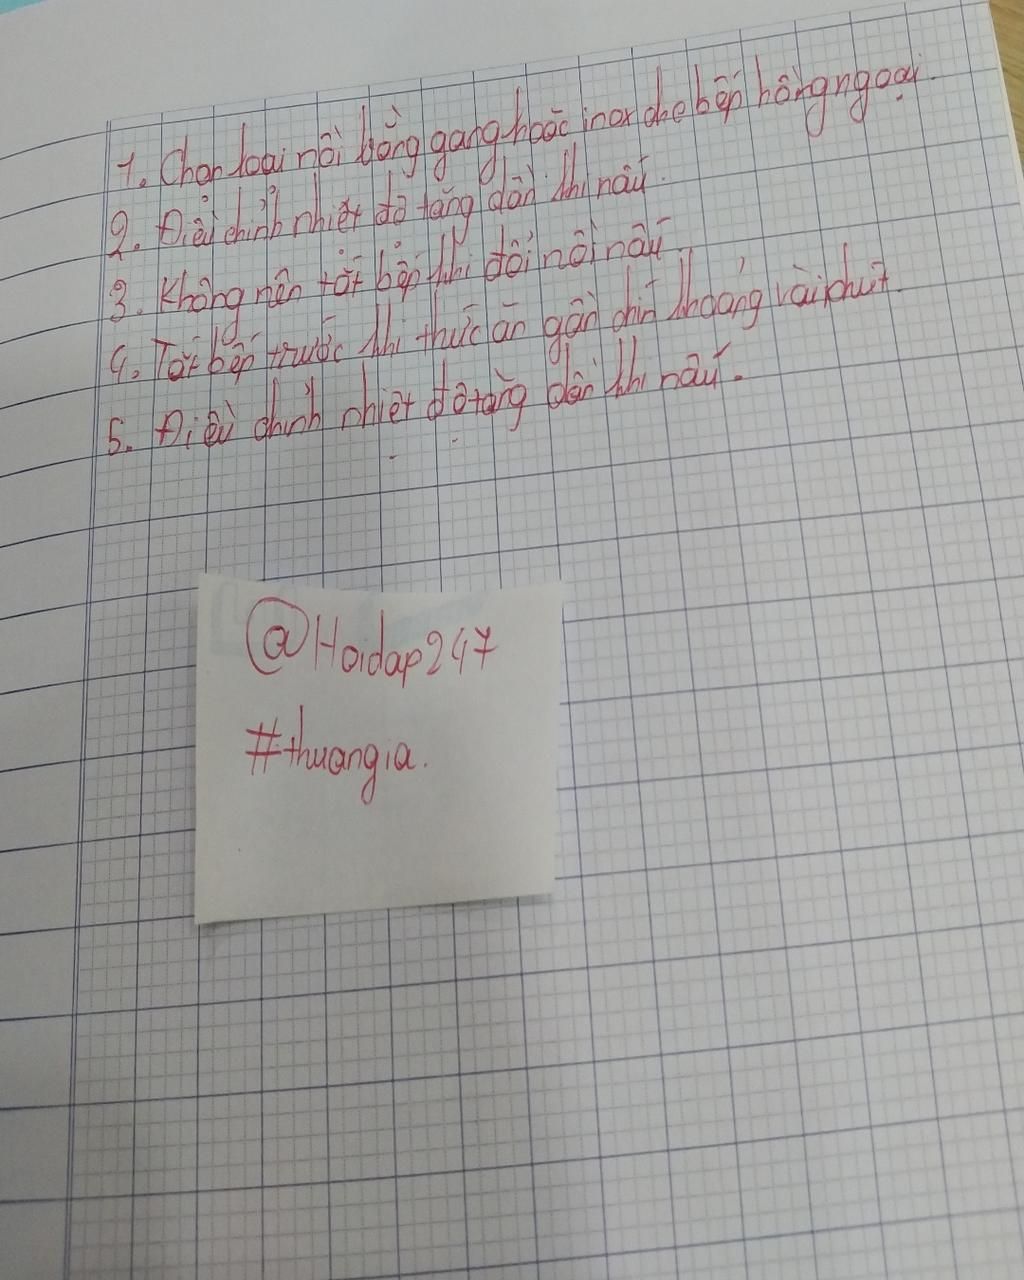 1. Chọn loại nồi bằng gang hoặc inox cho bếp hồng ngoại.
2. Điều chỉnh nhiệt độ tăng dần khi nấu.
3. Không nên tắt bếp khi đổi nồi nấu.
4. Tắt bếp trước khi thức ăn gần chín khoảng vài phút.
5. Điều chỉnh nhiệt độ tăng dần khi nấu.
@Hoidap247
#thuangia.